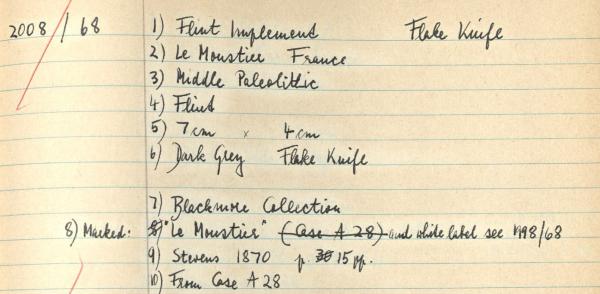 2008/68 1) Flint Implement Flake Knife
2) Le Moustier France
3) Middle Paleolithic
4) Flint
5) 7 cm x 4 cm
6) Dark Grey Flake Knife
7) Blackmore Collection
8) Marked: 8) "Le Moustier" (Case A 28) and white label see 1998/68
9) Stevens 1870 p. 15 pp.
10) From Case A 28